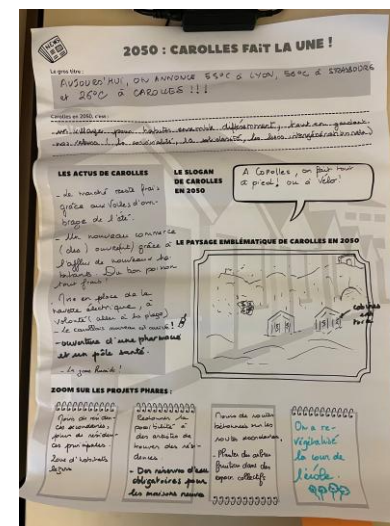 NEWS
2050 : CAROLLES FAIT LA UNE !
Le gros titre :
AUJOURD'HUI, ON ANNONCE 55°C à LYON, 50°C à STRASBOURG
et 26°C à CAROLLES !!!
Carolles en 2050, c'est :
un village pour habiter ensemble différemment, tout en gardant
nos valeurs : la convivialité, la solidarité, les liens intergénérationnels
LES ACTUS DE CAROLLES
- Le marché reste frais
grâce aux voiles d'om-
brage de l'été.
- Un nouveau commerce
(des) ouvert(s) grâce à
l'afflux de nouveaux ha-
bitants. Du bon poisson
tout frais !
- Mise en place de la
navette électrique, à
volonté (aller à la plage)
- ouverture d'une pharmacie
et un pôle santé.
LE SLOGAN
DE CAROLLES
EN 2050
A Carolles, on fait tout
à pied ! ou à vélo !
LE PAYSAGE EMBLÉMATIQUE DE CAROLLES EN 2050
Cabanes
ZOOM SUR LES PROJETS PHARES :
Moins de residen-
ces secondaires,
plus de résiden-
ces principales.
Zone d'habitats
légers
Redonner la
possibilité à
des artistes de
trouver des rési-
dences
- Des réserves d'eau
obligatoires pour
les maisons neuves
Moins de routes
bétonnées sur les
routes secondaires.
- Planter des arbres
fruitiers dans des
espaces collectifs
On a re-
végétalisé
la cour de
l'école.